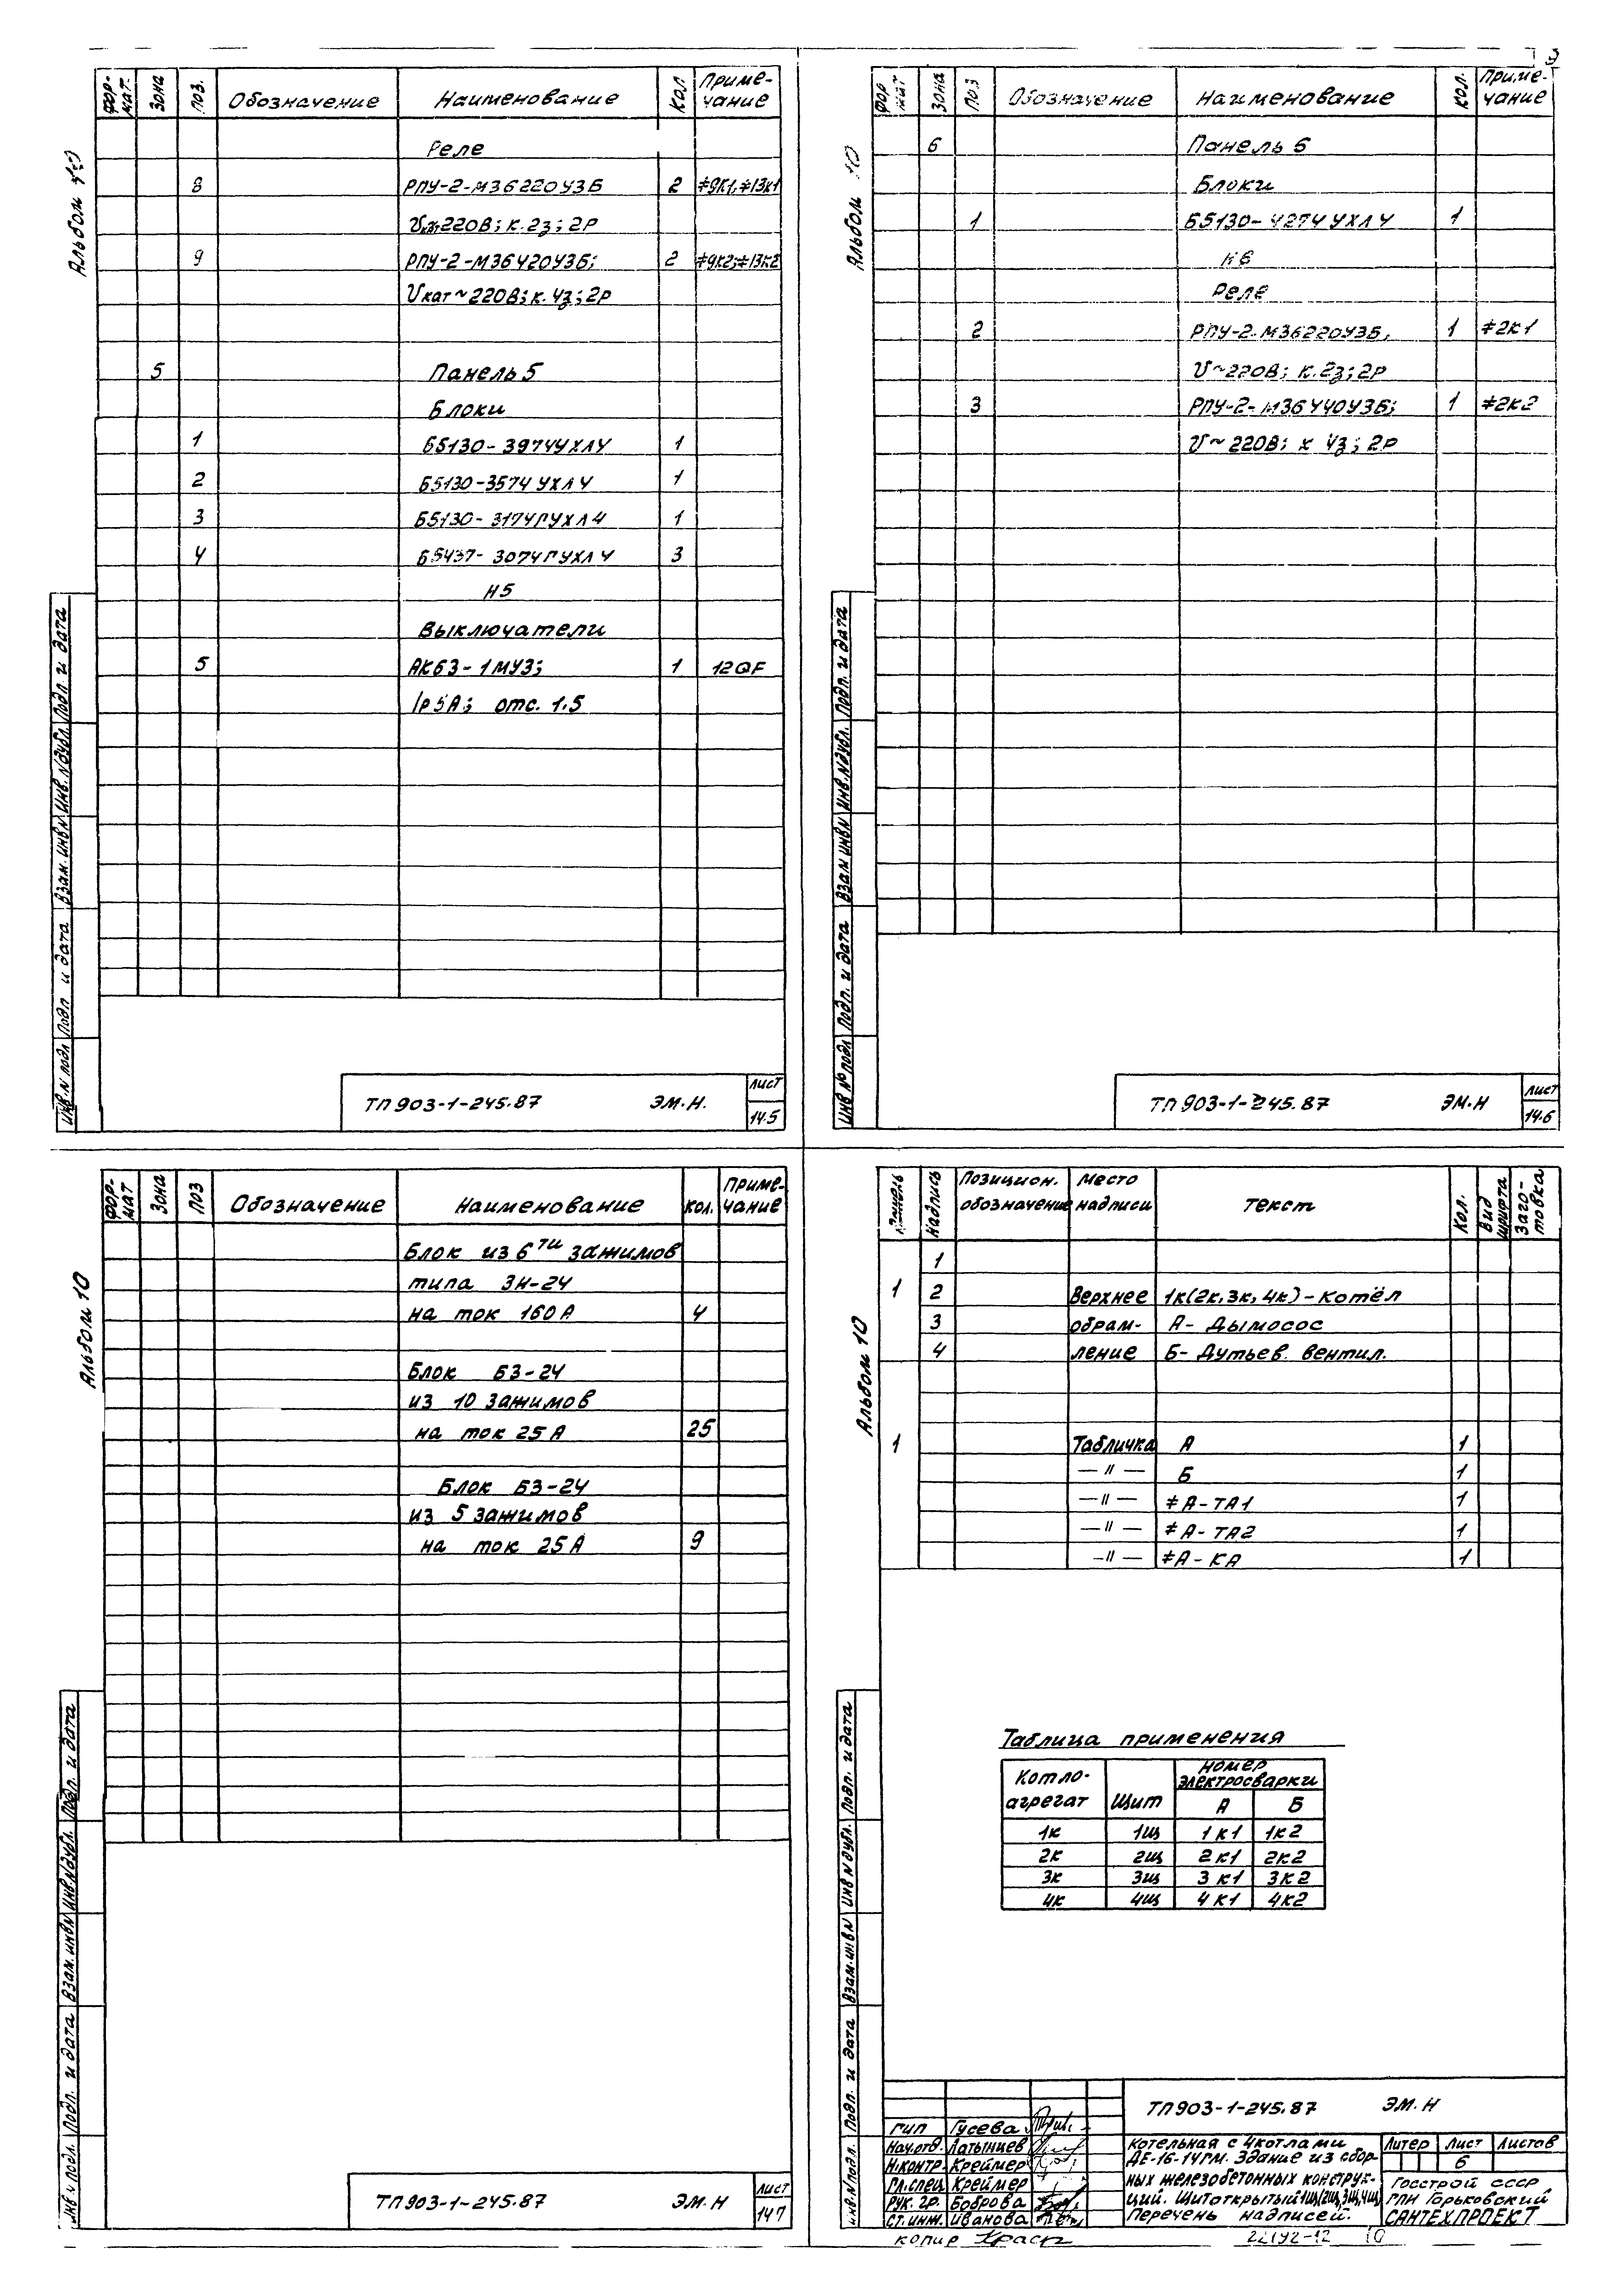 Альбом 10
Фор-мат. Зона Поз. Обозначение Наименование Кол Приме-чание
Реле
8 РПУ-2-М36220УЗБ 2 ≠9К1,≠13К1
Uкат~220В; к. 2з; 2Р
9 РПУ-2-М36420УЗБ; 2 ≠9К2;≠13К2
Uкат~220В; к. 4з; 2Р
5 Панель 5
Блоки
1 Б5130-3974УХЛ4 1
2 Б5130-3574 УХЛ4 1
3 Б5130-3174ГУХЛ4 1
4 Б5437-3074ГУХЛ4 3
Н5
Выключатели
5 АК63-1МУ3; 1 12QF
Iр 5А; отс. 1.5
Инв.N подл Подп и дата Взам.инвN Инв.Nдубл. Подп. и дата
ТП 903-1-245.87 ЭМ.Н. Лист
14.5
Альбом 10
Фор мат Зона Поз Обозначение Наименование Кол. Приме-чание
6 Панель 6
Блоки
1 Б5130-4274 УХЛ4 1
Н6
Реле
2 РПУ-2-М36220УЗБ, 1 ≠2К1
U~220В; к. 2з; 2Р
3 РПУ-2-М36440УЗБ; 1 ≠2К2
U~220В; к 4з; 2Р
Инв № подл Подп. и дата Взам инвN Инв.Nдубл. Подп. и дата
ТП 903-1-245.87 ЭМ.Н Лист
14.6
Альбом 10
Фор-мат Зона Поз Обозначение Наименование Кол. Приме-чание
Блок из 6ти зажимов
типа ЗН-24
на ток 160 А 4
Блок БЗ-24
из 10 зажимов
на ток 25 А 25
Блок БЗ-24
из 5 зажимов
на ток 25 А 9
Инв N подл. Подп. и дата Взам.инвN Инв.Nдубл. Подп. и дата
ТП 903-1-245.87 ЭМ.Н Лист
14.7
Альбом 10
Панель Надпись Позицион. обозначение Место надписи Текст Кол. Вид шрифта Заго-товка
1
1 2 Верхнее 1к(2к,3к,4к)-Котёл
3 обрам- А- Дымосос
4 ление Б- Дутьев. вентил.
1 Табличка А 1
— " — Б 1
— " — ≠А-ТА1 1
— " — ≠А-ТА2 1
— " — ≠А-КА 1
Таблица применения
Котло-агрегат Щит Номер электросварки
А Б
1к 1щ 1К1 1К2
2к 2щ 2К1 2К2
3к 3щ 3К1 3К2
4к 4щ 4К1 4К2
Инв.N подл. Подп. и дата Взам.инв.N Инв N дубл. Подп. и дата
ТП 903-1-245.87 ЭМ.Н
ГИП Гусева
Нач.отд. Латынцев
Н.контр. Креймер
Гл.спец Креймер
Рук. гр. Боброва
Ст. инж. Иванова
Котельная с 4 котлами
ДЕ-16-14ГМ. Здание из сбор-
ных железобетонных конструк-
ций. Щит открытый 1щ(2щ,3щ,4щ)
Перечень надписей.
Литер Лист Листов
6
Госстрой СССР
ГПИ Горьковский
САНТЕХПРОЕКТ
копир 22192-12 10